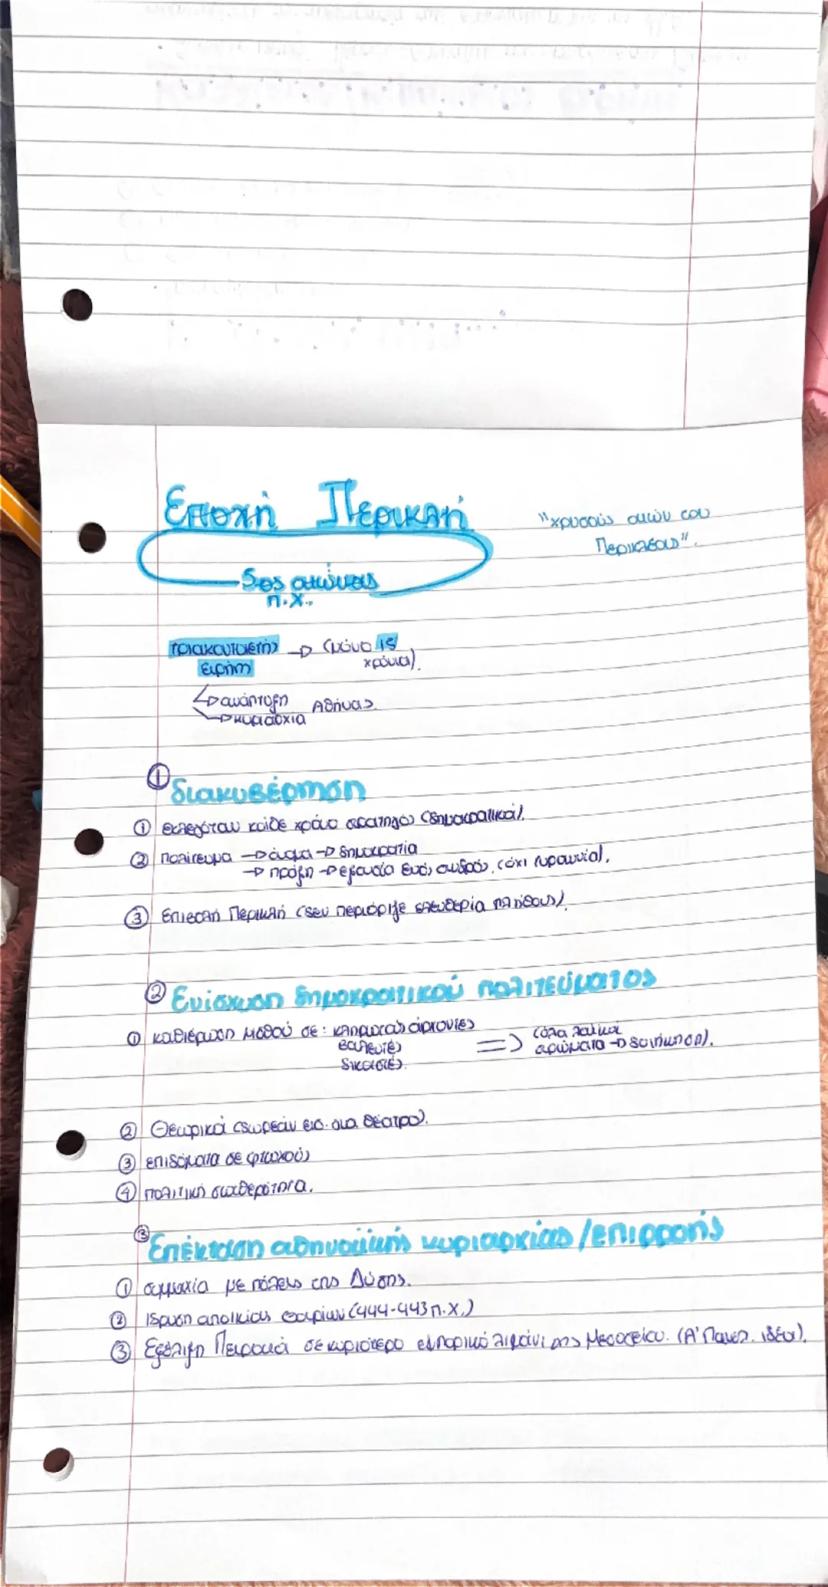 Εποχή Περικλή
"χρυσούς αιών του
Περικλέους".
5ος αιώνας
π.χ.
τριακονταετής → (μόνο 15
ειρήνη χρόνια).
→ ανάπτυξη Αθήνας
→ κυριαρχία
① διακυβέρνηση
① εκλεγόταν κάθε χρόνο στρατηγός (δημοκρατικοί).
② πολίτευμα → όνομα → δημοκρατία
→ πράξη → εξουσία ενός ανδρός, (όχι τυραννία).
③ Επιβολή Περικλή (δεν περιόριζε ελευθερία πλήθους).
② Ενίσχυση δημοκρατικού πολιτεύματος
① καθιέρωση μισθού σε: κληρωτούς άρχοντες
βουλευτές ⇒ (όλα λαϊκά
δικαστές. στρώματα → διοίκηση).
② Θεωρικά (δωρεάν εισ. στα θέατρο).
③ επιδόματα σε φτωχούς
④ πολιτική σταθερότητα.
③ Επέκταση αθηναϊκής κυριαρχίας/επιρροής
① συμμαχία με πόλεις της Δύσης.
② Ίδρυση αποικίας Θουρίων (444-443 π.χ.)
③ Εξέλιξη Πειραιά σε κυριότερο εμπορικό λιμάνι της Μεσογείου. (Α' Πανελ. ιδέα).